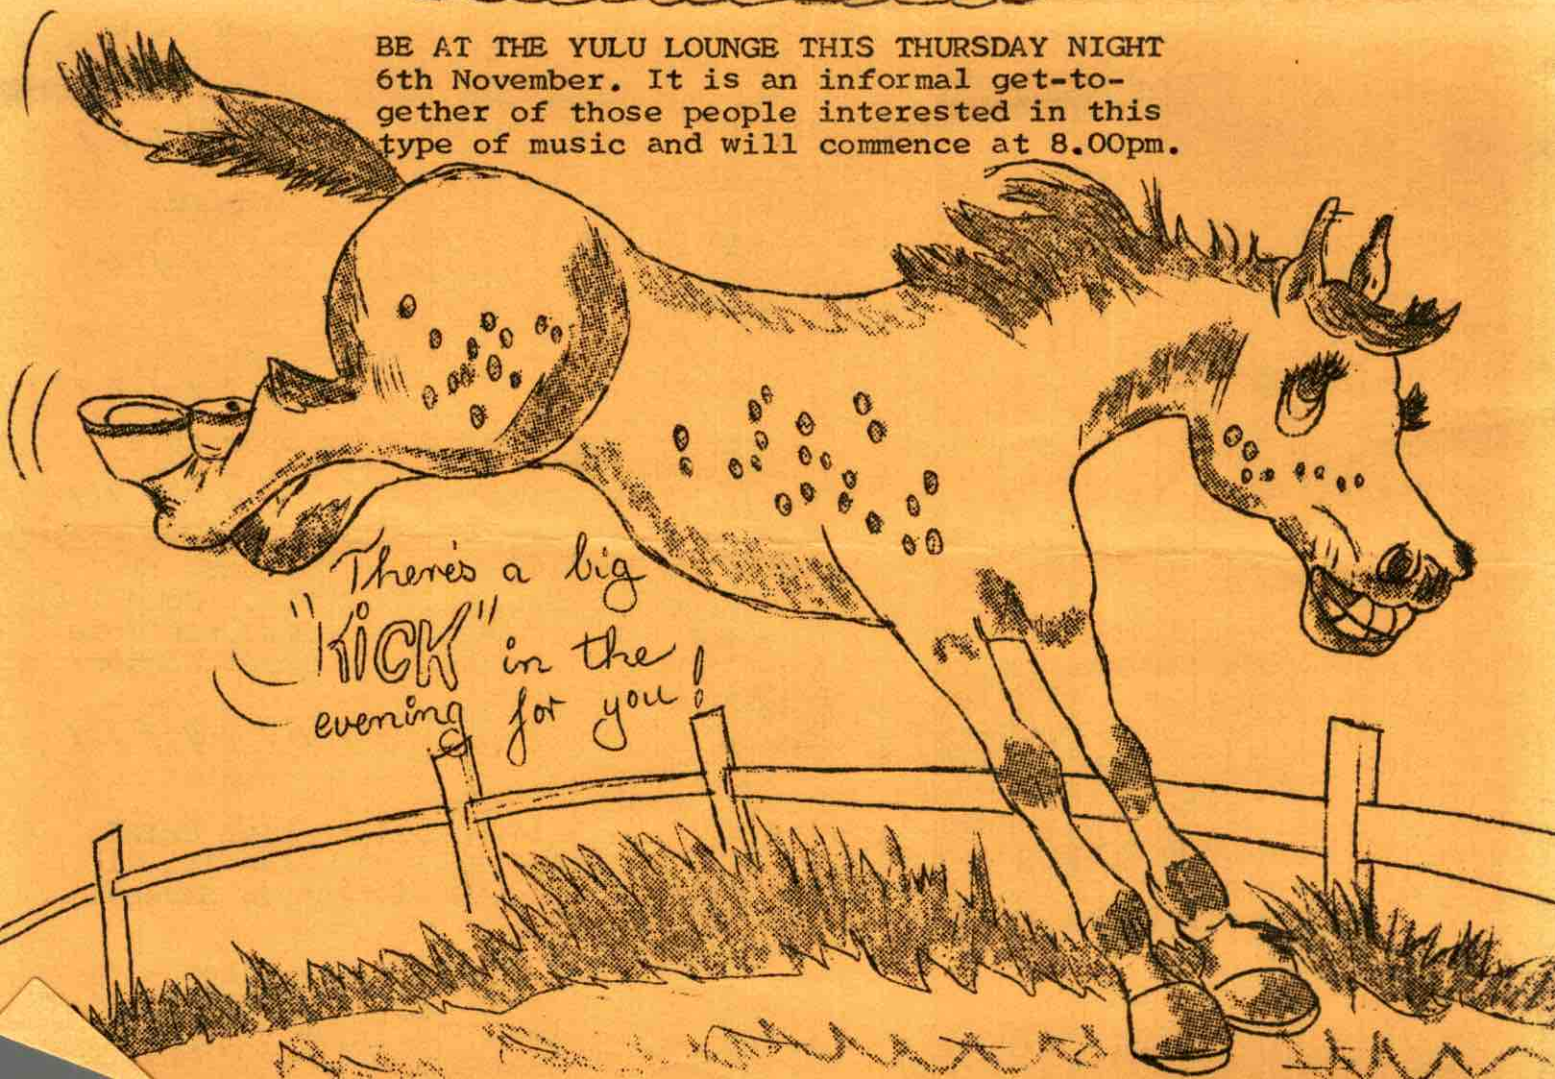 BE AT THE YULU LOUNGE THIS THURSDAY NIGHT
6th November. It is an informal get-to-
gether of those people interested in this
type of music and will commence at 8.00pm.
There's a big
"KiCK" in the
evening for you!